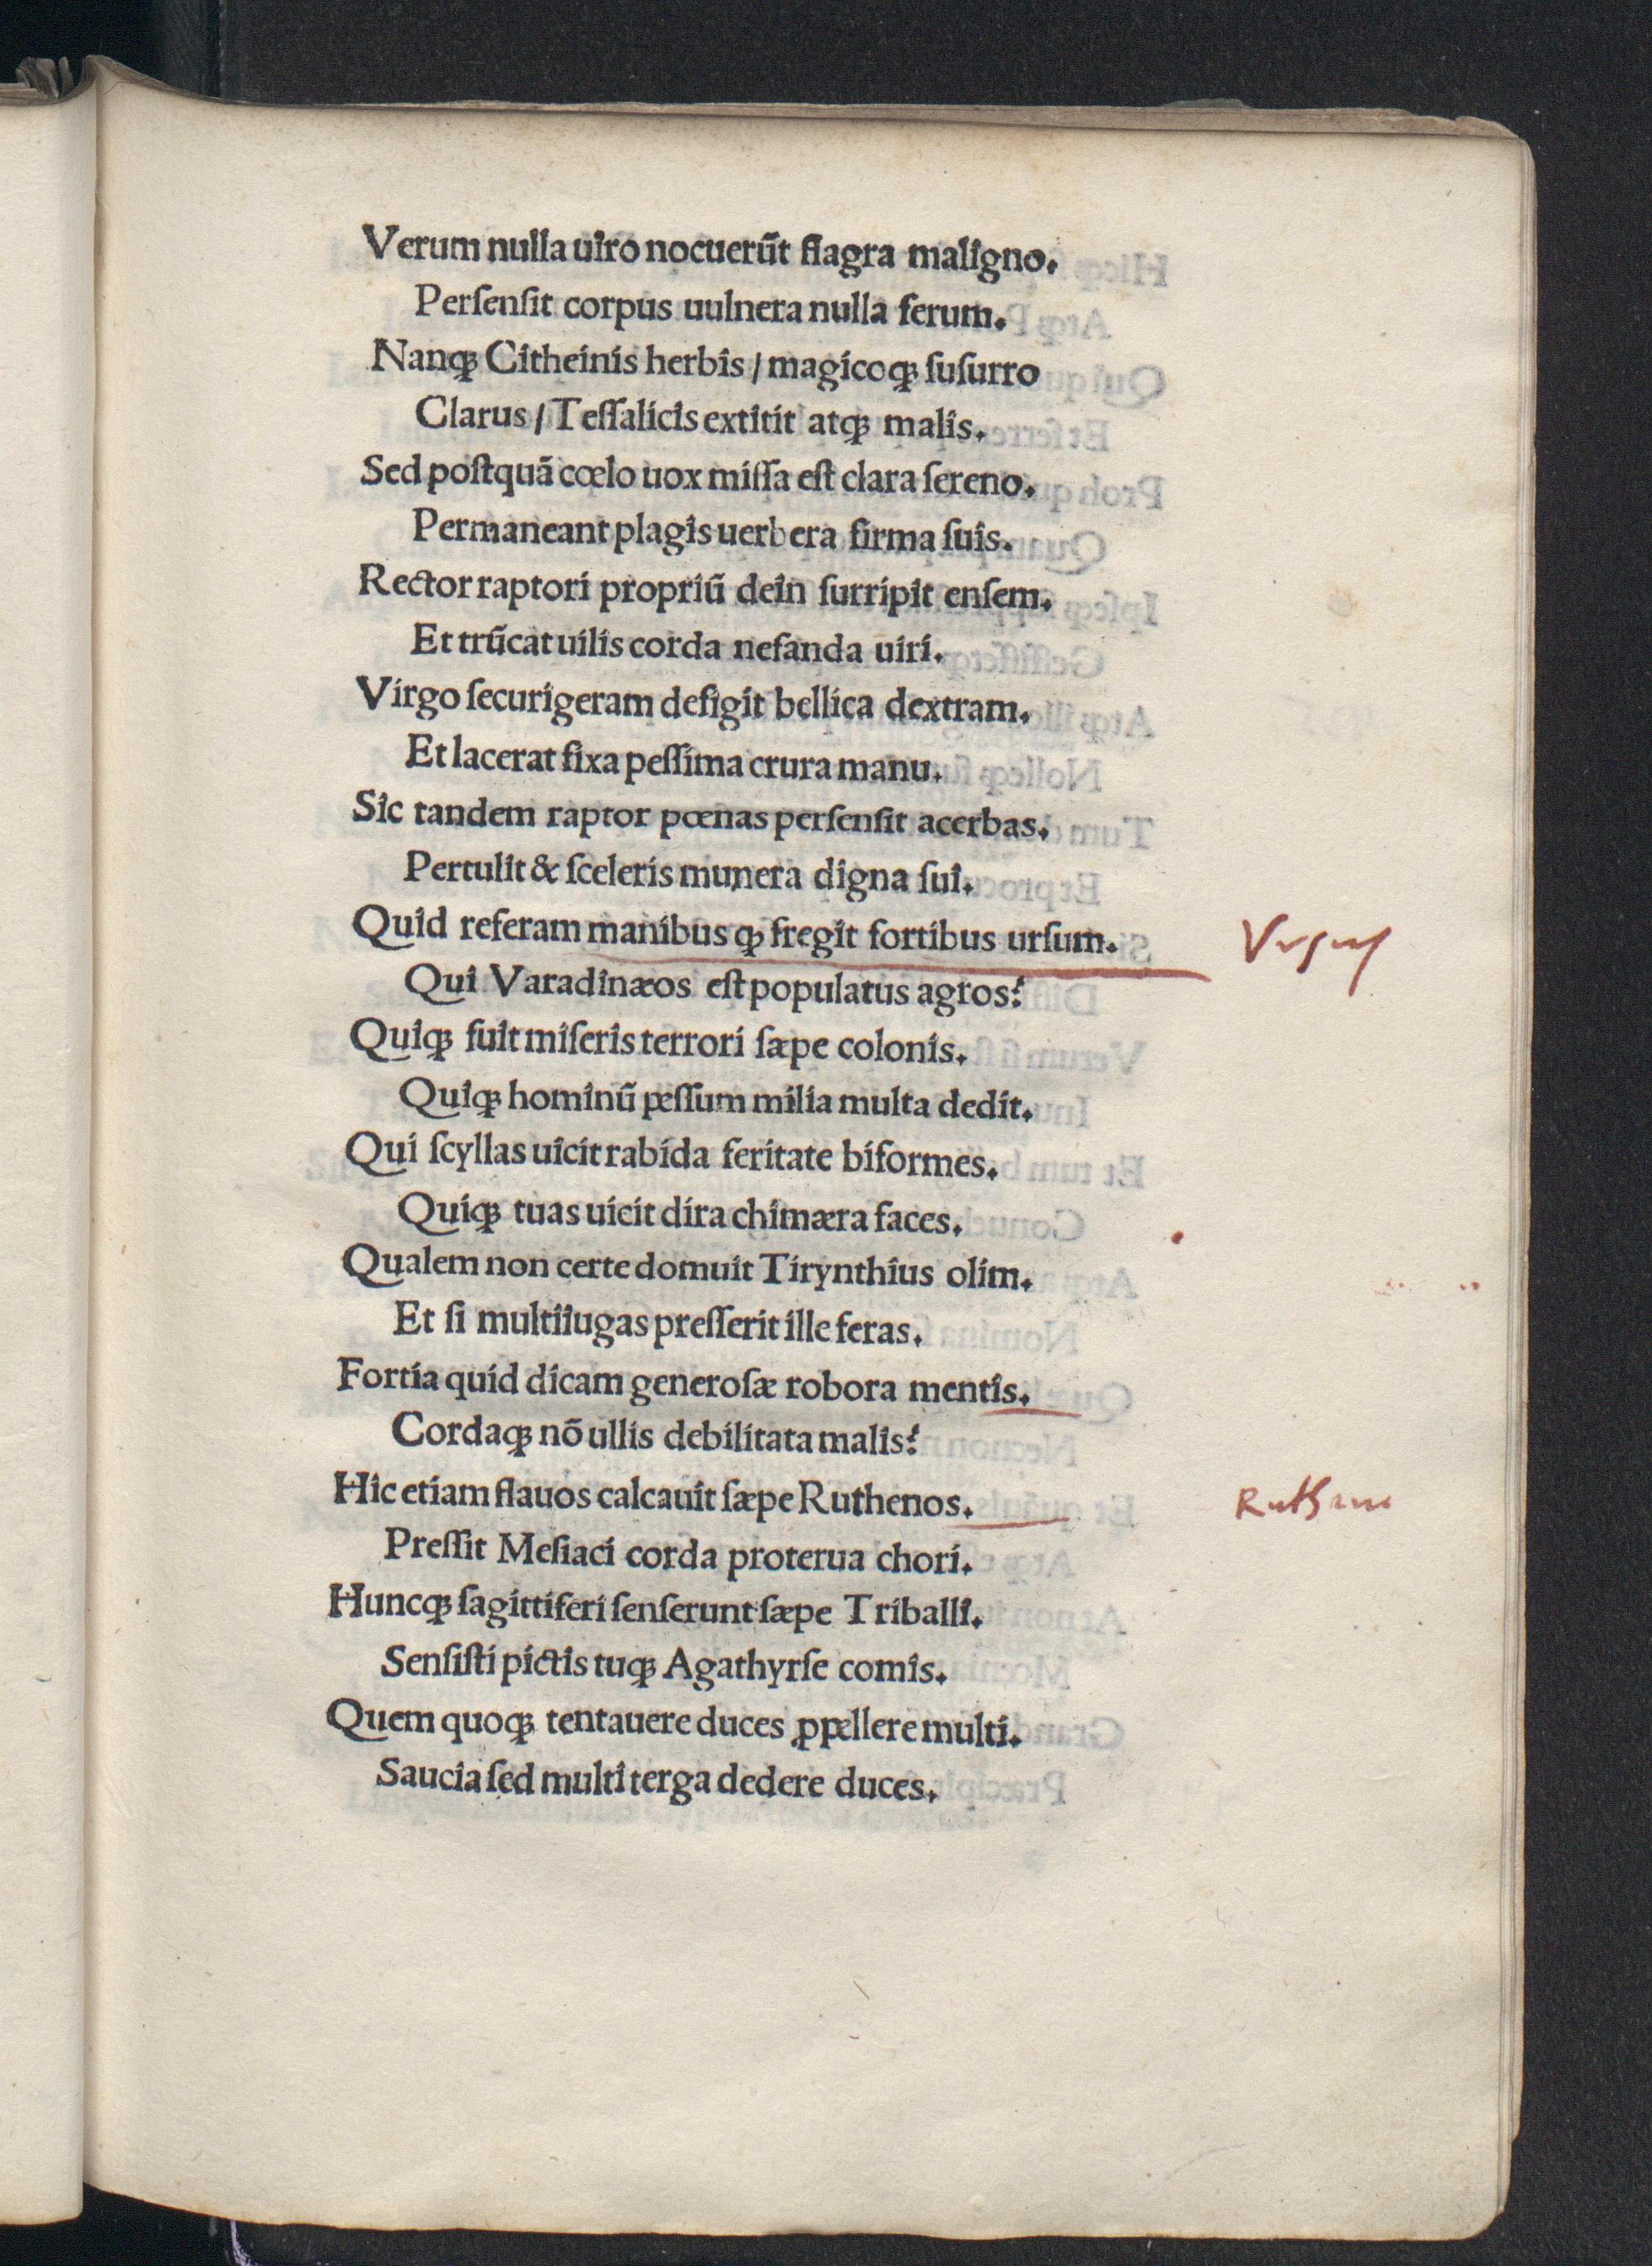 Verum nulla uiro nocuerūt flagra maligno.
Perſenſit corpus uulnera nulla ferum.
Nanqꝫ Citheinis herbis / magicoqꝫ ſuſurro
Clarus / Teſſalicis extitit atqꝫ malis.
Sed poſtquã cœlo uox miſſa eſt clara ſereno.
Permaneant plagis uerbera firma ſuis.
Rector raptori propriū dein ſurripit enſem.
Et trūcat uilis corda nefanda uiri.
Virgo ſecurigeram defigit bellica dextram.
Et lacerat fixa peſſima crura manu.
Sic tandem raptor pœnas perſenſit acerbas.
Pertulit & ſceleris munera digna ſui.
Quid referam manibus qꝫ fregit fortibus urſum.
Vrsus
Qui Varadinæos eſt populatus agros?
Quiqꝫ fuit miſeris terrori ſæpe colonis.
Quiqꝫ hominū peſſum milia multa dedit.
Qui ſcyllas uicit rabida feritate biformes.
Quiqꝫ tuas uicit dira chimæra faces.
Qualem non certe domuit Tirynthius olim.
Et ſi multiiugas preſſerit ille feras.
Fortia quid dicam generoſæ robora mentis.
Cordaqꝫ nō ullis debilitata malis?
Hic etiam flauos calcauit ſæpe Ruthenos.
Rutheni
Preſſit Meſiaci corda proterua chori.
Huncqꝫ ſagittiferi ſenſerunt ſæpe Triballi.
Senſiſti pictis tuqꝫ Agathyrſe comis.
Quem quoqꝫ tentauere duces ꝓpellere multi.
Saucia ſed multi terga dedere duces.